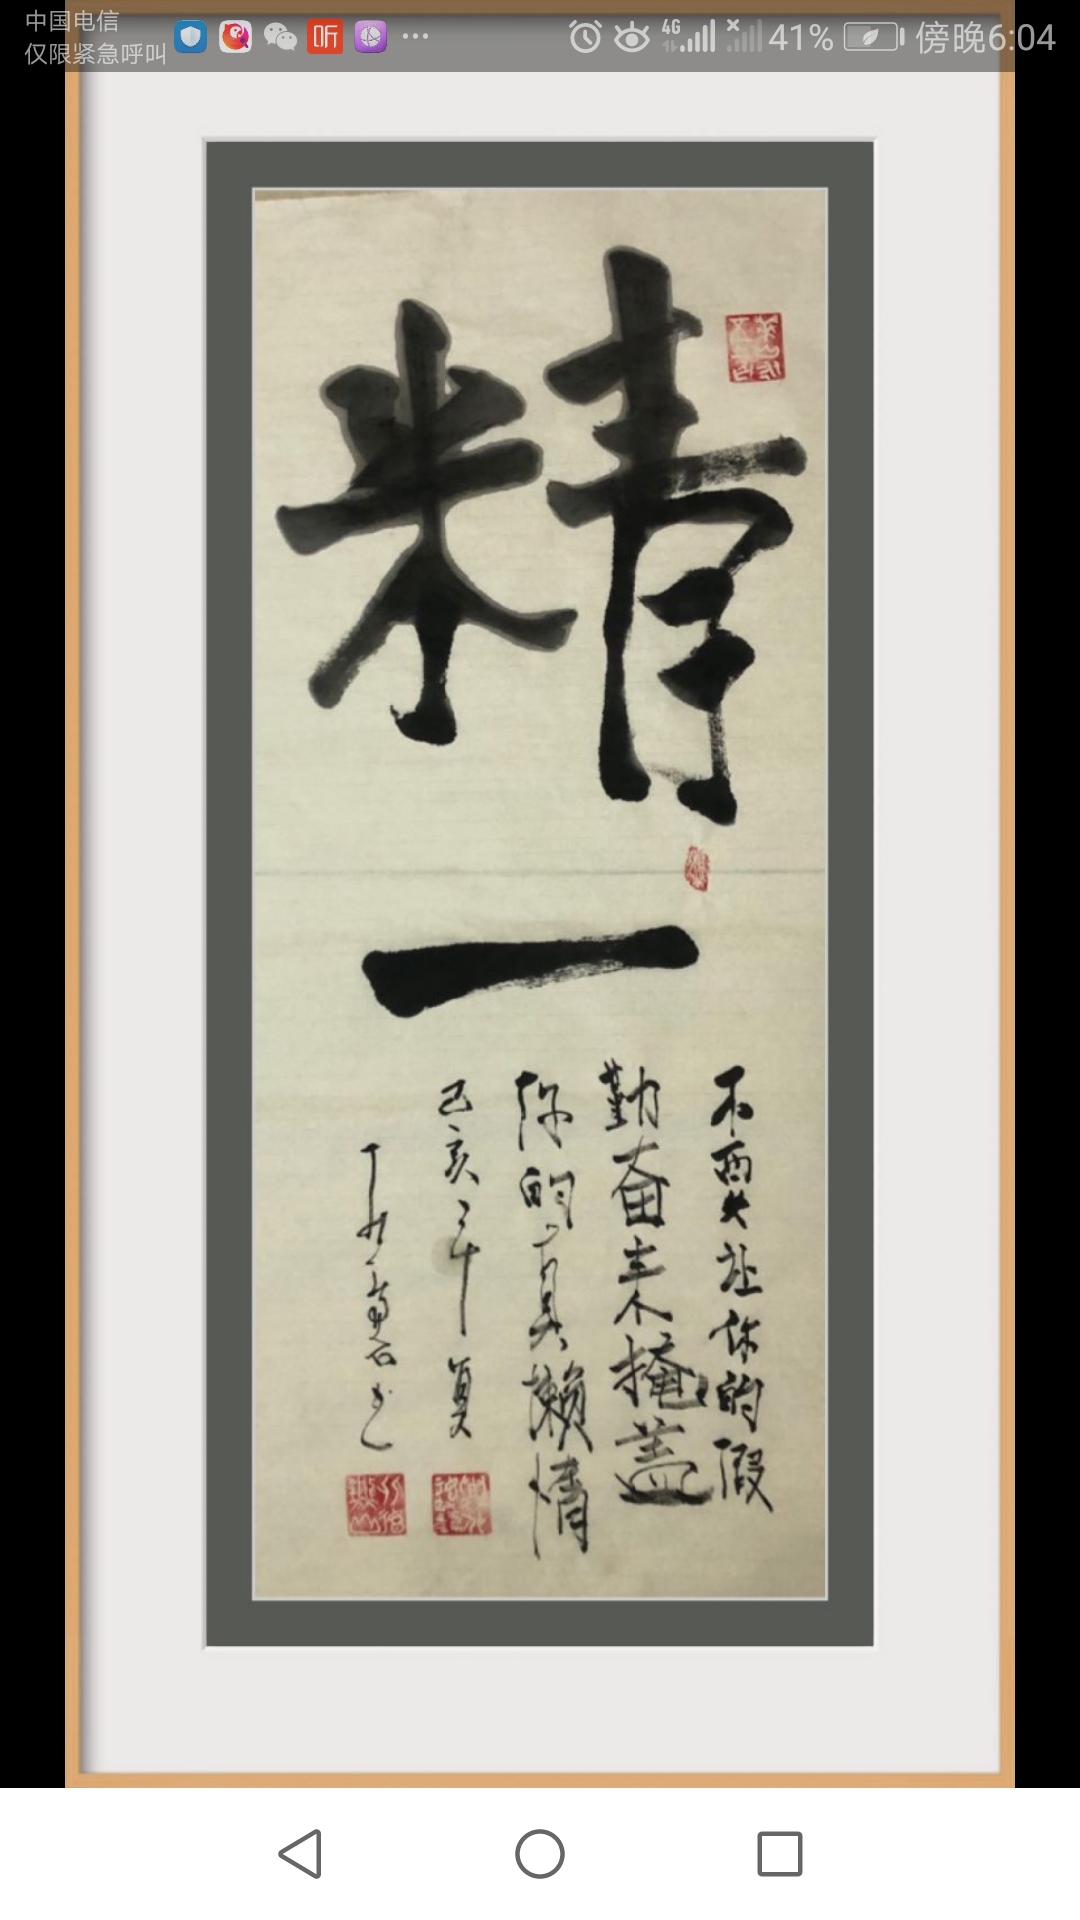 中国电信
仅限紧急呼叫
听
4G
41%
傍晚6:04
精
一
不要让你的假
勤奋来掩盖
你的真懒惰
己亥年夏